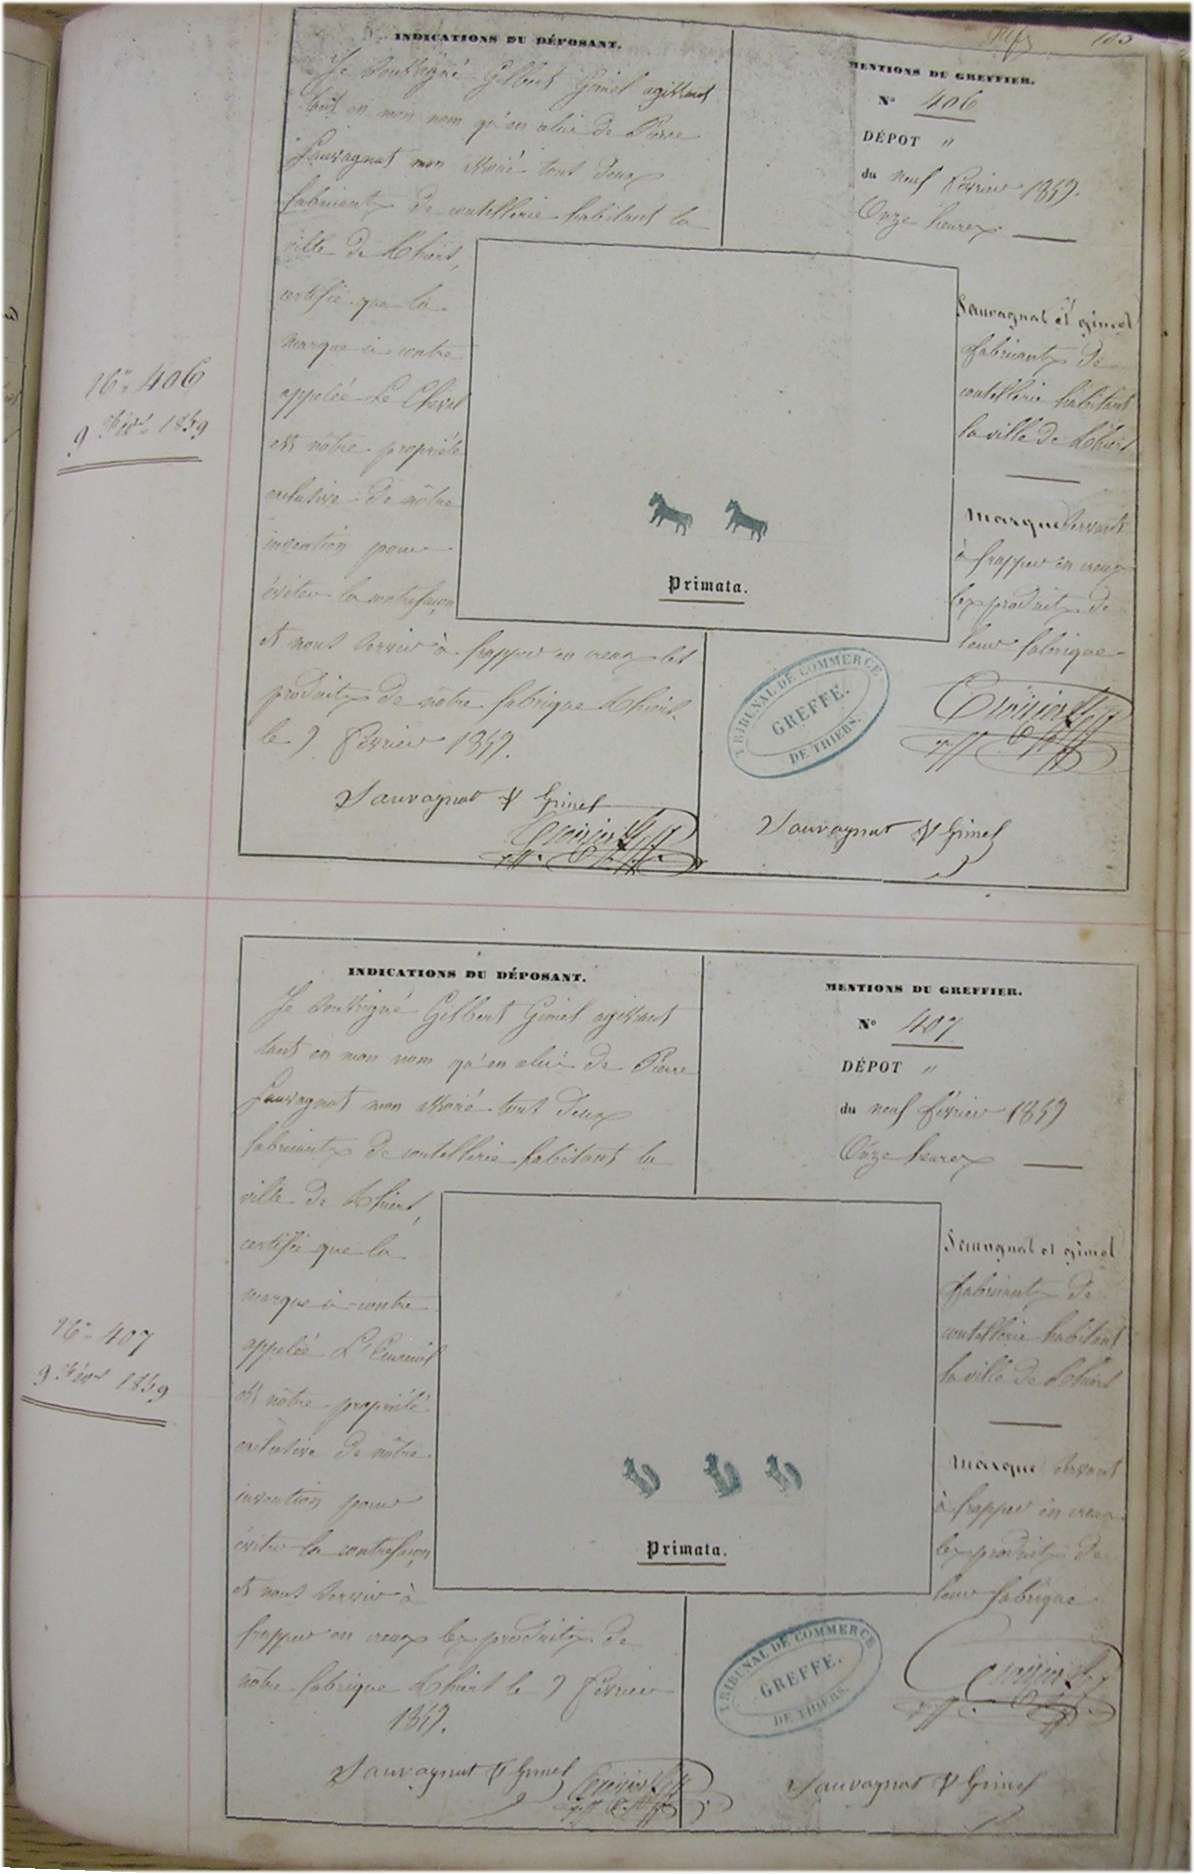 103
INDICATIONS DU DÉPOSANT.
Je soussigné Gilbert Gimel agissant
tant en mon nom qu'en celui de Pierre
Sauvagnat mon associé tout deux
fabricants de coutellerie habitant la
ville de Thiers,
certifie que la
marque ci contre
appelée Le Cheval
est nôtre propriété
exclusive de nôtre
invention pour
éviter la contrefaçon
et nous servir à frapper en creux les
produits de nôtre fabrique Thiers
le 9 février 1859.
Sauvagnat & Gimel
MENTIONS DU GREFFIER.
N° 406
DÉPOT "
du neuf février 1859.
Onze heures
Sauvagnat et gimel
fabricants de
coutellerie habitant
la ville de Thiers
marque servant
à frapper en creux
les produits de
leur fabrique
Primata.
TRIBUNAL DE COMMERCE
GREFFE.
DE THIERS.
Sauvagnat & Gimel
N° 406
9 fév. 1859
INDICATIONS DU DÉPOSANT.
Je soussigné Gilbert Gimel agissant
tant en mon nom qu'en celui de Pierre
Sauvagnat mon associé tout deux
fabricants de coutellerie habitant la
ville de Thiers,
certifie que la
marque ci-contre
appelée L'Ecureuil
est nôtre propriété
exclusive de nôtre
invention pour
éviter la contrefaçon
et nous servir à
frapper en creux les produits de
nôtre fabrique Thiers le 9 février
1859.
Sauvagnat & Gimel
MENTIONS DU GREFFIER.
N° 407
DÉPOT "
du neuf février 1859
Onze heures
Sauvagnat et gimel
fabricants de
coutellerie habitant
la ville de Thiers
marque servant
à frapper en creux
les produits de
leur fabrique
Primata.
TRIBUNAL DE COMMERCE
GREFFE.
DE THIERS.
Sauvagnat & Gimel
N° 407
9 fév. 1859